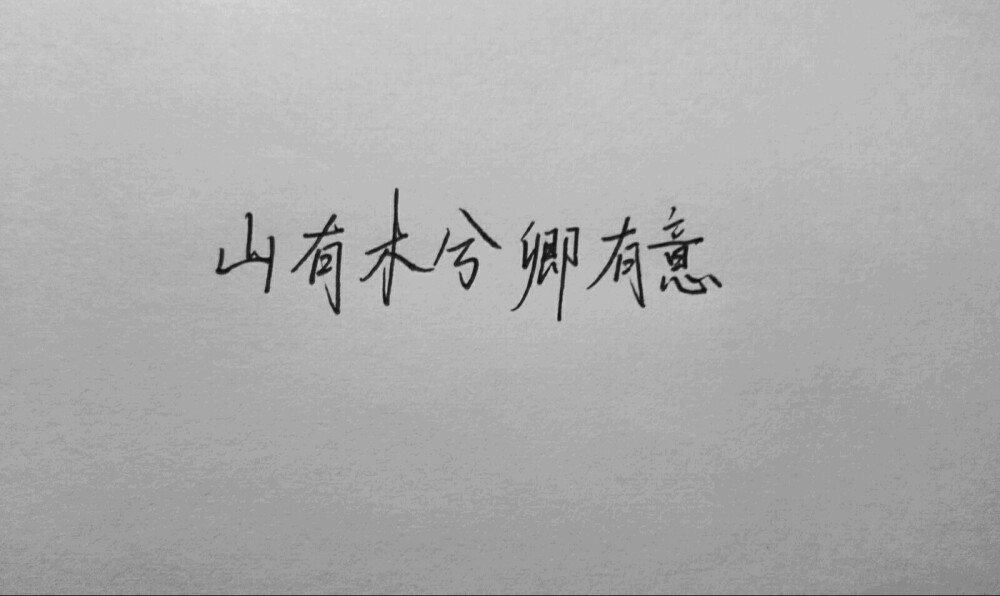 山有木兮卿有意